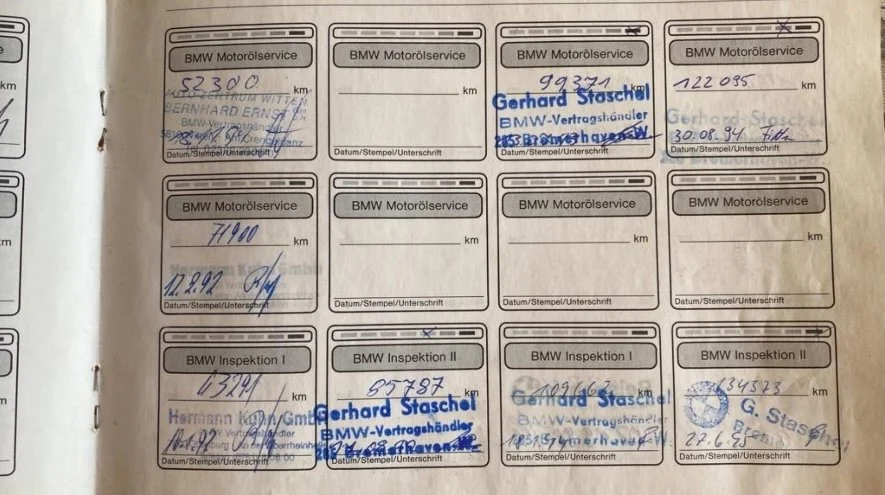 BMW Motorölservice
52300 km
AUTOZENTRUM WITTEN
BERNHARD ERNST
BMW-Vertragshändler
Datum/Stempel/Unterschrift
BMW Motorölservice
km
Datum/Stempel/Unterschrift
BMW Motorölservice
99371 km
Gerhard Staschel
BMW-Vertragshändler
285 Bremerhaven-W.
Datum/Stempel/Unterschrift
BMW Motorölservice
122095 km
Gerhard Staschel
30.08.94
Bremerhaven-W.
Datum/Stempel/Unterschrift
BMW Motorölservice
71900 km
Hermann Kuhn GmbH
12.2.92
Datum/Stempel/Unterschrift
BMW Motorölservice
km
Datum/Stempel/Unterschrift
BMW Motorölservice
km
Datum/Stempel/Unterschrift
BMW Motorölservice
km
Datum/Stempel/Unterschrift
BMW Inspektion I
km
Hermann Kuhn GmbH
Vertragshändler
Datum/Stempel/Unterschrift
BMW Inspektion II
85787 km
Gerhard Staschel
BMW-Vertragshändler
285 Bremerhaven-W.
Datum/Stempel/Unterschrift
BMW Inspektion I
km
Gerhard Staschel
BMW-Vertragshändler
Bremerhaven-W.
Datum/Stempel/Unterschrift
BMW Inspektion II
134373 km
BMW
G. Staschel
27.6.95
Datum/Stempel/Unterschrift
km
km
km